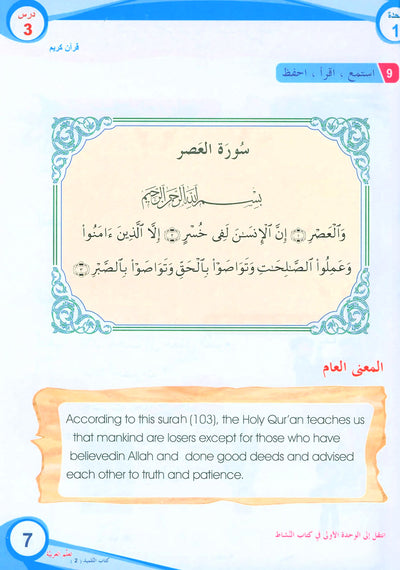 درس
3
حدة
1
قرآن كريم
9 استمع ، اقرأ ، احفظ
سُورَة العَصر
بِسْمِ اللَّهِ الرَّحْمَٰنِ الرَّحِيمِ
وَالْعَصْرِ ۝١ إِنَّ الْإِنسَٰنَ لَفِى خُسْرٍ ۝٢ إِلَّا الَّذِينَ ءَامَنُوا۟
وَعَمِلُوا۟ الصَّٰلِحَٰتِ وَتَوَاصَوْا۟ بِالْحَقِّ وَتَوَاصَوْا۟ بِالصَّبْرِ ۝٣
المعنى العام
According to this surah (103), the Holy Qur'an teaches us
that mankind are losers except for those who have
believedin Allah and done good deeds and advised
each other to truth and patience.
انتقل إلى الوحدة الأولى في كتاب النشاط
7
كتاب التلميذ ( 2 )